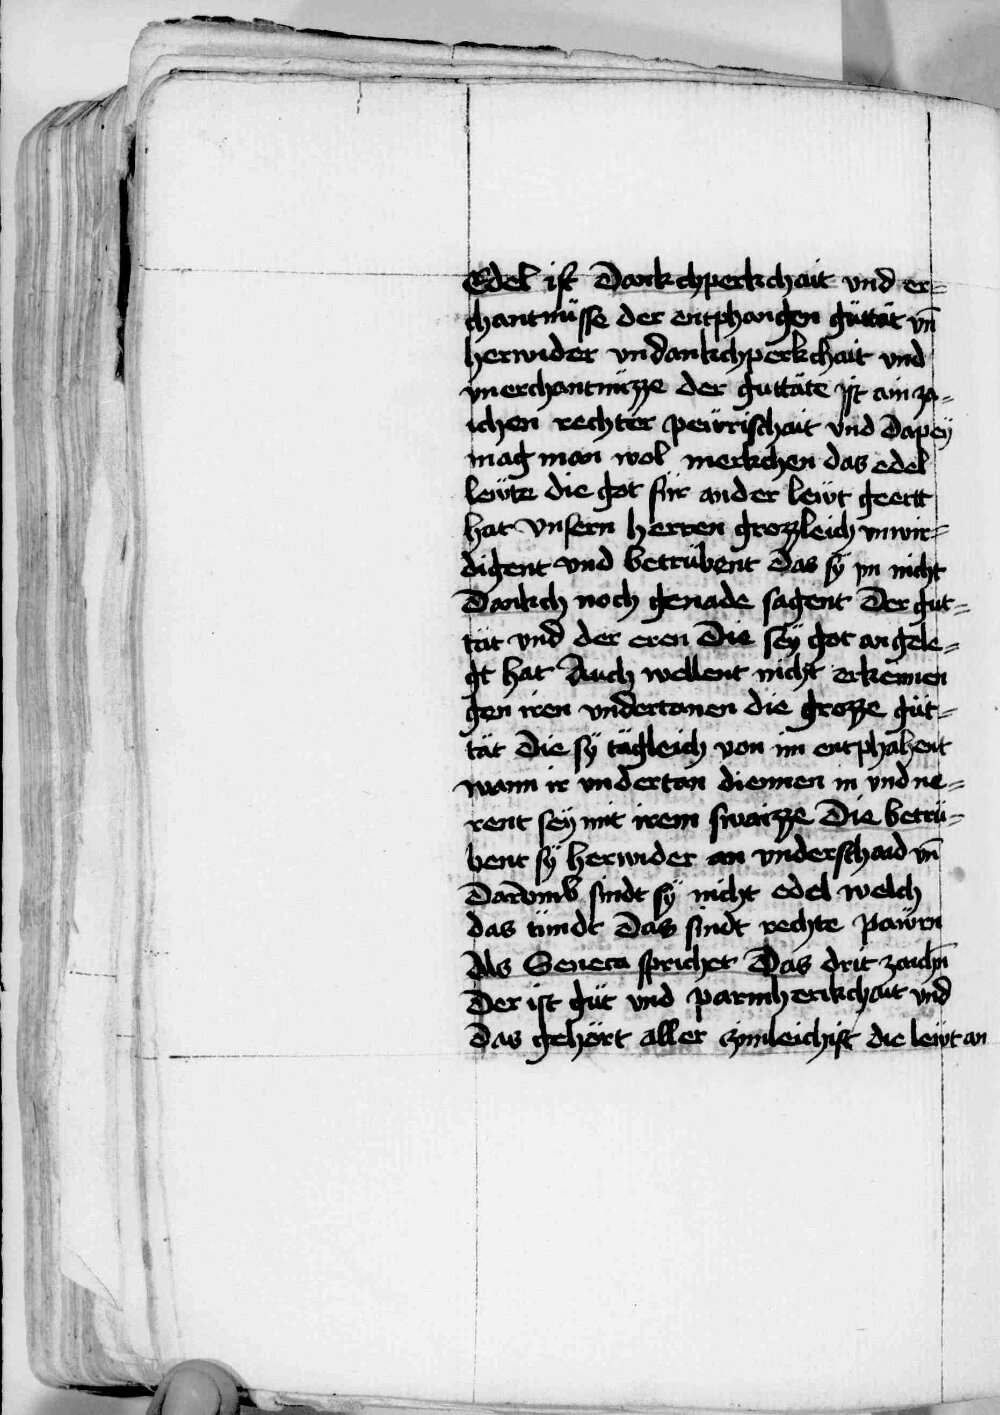 Edel ist Dankchperkchait vnd er=
chantnüsse der entphangen güttät vn̄
herwider vndankchperkchait vnd
vnerchantnüzze der guttäte ist ain za-
ichen rechter peẅrischait vnd Dapeÿ
mag man wol merkchen das edel
leẅte die got für ander leẅt geertt
hat Vnsern herren grozzleich vnwir=
digent vnd betrübent Das sÿ ym nicht
Dankch noch genade sagent Der gut=
tät vnd der eren Die seÿ got an gele=
gt hat Auch wellent nicht erkennen
gen iren vndertanen die grozze güt=
tät Die sÿ tägleich von im entphahent
wann ir vndertan diennen in vnd ne=
rent seÿ mit irem swaizze Die betrü=
bent sÿ herwider an vnderschaid vn̄
Darvmb sindt sÿ nicht edel welch
das tündt Das sindt rechte paẅrn
Als Seneca sprichet Das drit zaichn̄
Der ist güt vnd parmherikchait vnd
Das gehört aller zimleichist die leẅt an